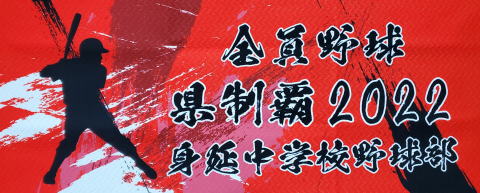 全員野球
県制覇2022
身延中学校野球部